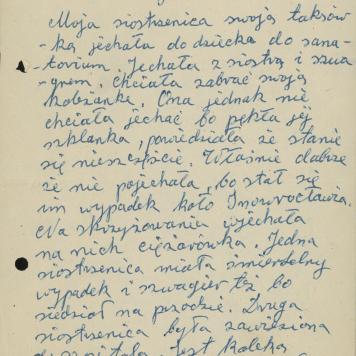 Moja siostrzenica swoją taksów-
-ką jechała do dziecka do sana-
-torium. Jechała z siostrą i szwa-
-grem. Chciała zabrać swoją
koleżankę. Ona jednak nie
chciała jechać bo pękła jej
szklanka, powiedziała że stanie
się nieszczęście. Właśnie dobrze
że nie pojechała, bo stał się
im wypadek koło Inowrocławia.
Na skrzyżowaniu wjechała
na nich ciężarówka. Jedna
siostrzenica miała śmierdelny
wypadek i szwagier też bo
siedział na przodzie. Druga
siostrzenica była zawieziona
do szpitala. Jest kaleką